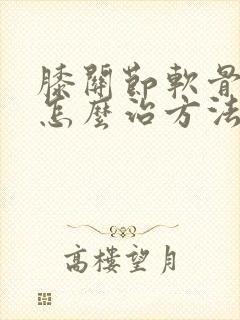 膝關節軟骨
怎麼治方法
高樓望月